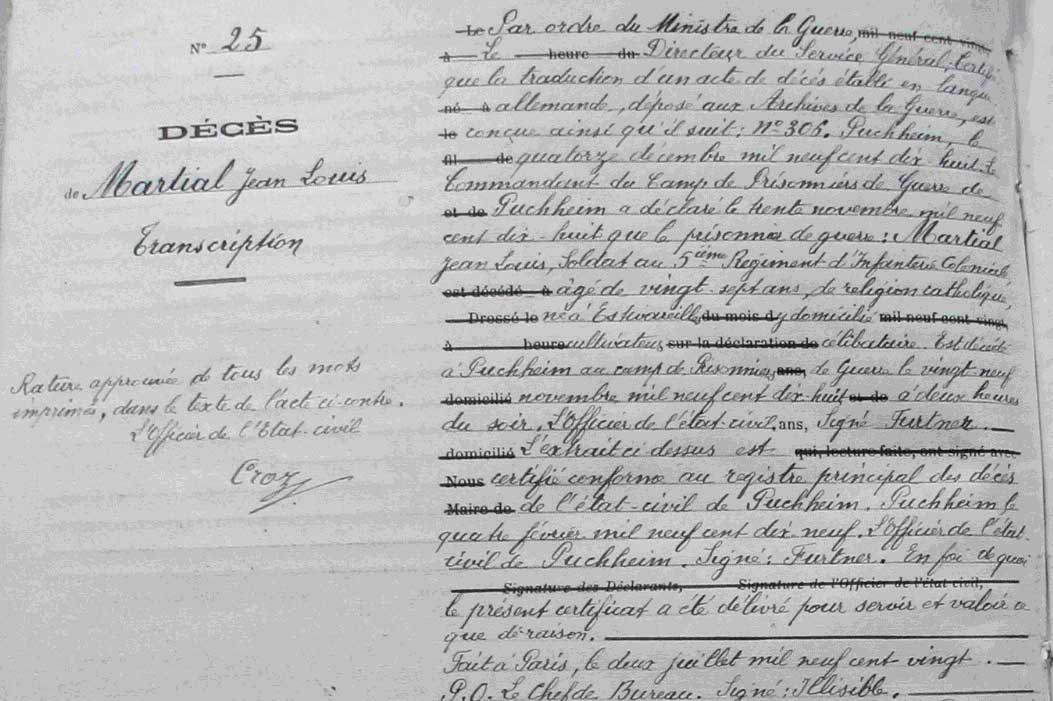 N° 25
DÉCÈS
de Martial Jean Louis
Transcription
Rature approuvée de tous les mots
imprimés, dans le texte de l'acte ci-contre.
L'Officier de l'Etat-civil
Croz
Le Par ordre du Ministre de la Guerre, mil neuf cent vingt
à Le heure du Directeur du Service Général, Certifie
que la traduction d'un acte de décès établi en langue
né à allemande, déposé aux Archives de la Guerre, est
le conçue ainsi qu'il suit : N° 306. Puchheim, le
fil de quatorze décembre mil neuf cent dix-huit. Le
Commandant du Camp de Prisonniers de Guerre de
et de Puchheim a déclaré le trente novembre mil neuf
cent dix-huit que le prisonnier de guerre : Martial
Jean Louis, Soldat au 5ième Régiment d'Infanterie Coloniale
est décédé à âgé de vingt-sept ans, de religion catholique,
Dressé le né à Estivareilles du mois d y domicilié mil neuf cent vingt
à heure cultivateur sur la déclaration de célibataire. Est décédé
à Puchheim au camp de Prisonniers ans, de Guerre le vingt neuf
domicilié novembre mil neuf cent dix-huit et de à deux heures
du soir. L'Officier de l'état-civil, ans, Signé Furtner.
domicilié L'extrait ci dessus est qui, lecture faite, ont signé avec
Nous certifié conforme au registre principal des décès
Maire de de l'état-civil de Puchheim. Puchheim le
quatre février mil neuf cent dix neuf. L'Officier de l'état
civil de Puchheim. Signé : Furtner. En foi de quoi
Signature des Déclarants, Signature de l'Officier de l'état civil,
le présent certificat a été délivré pour servir et valoir ce
que de raison.
Fait à Paris, le deux juillet mil neuf cent vingt.
P.O. Le Chef de Bureau. Signé : Illisible.